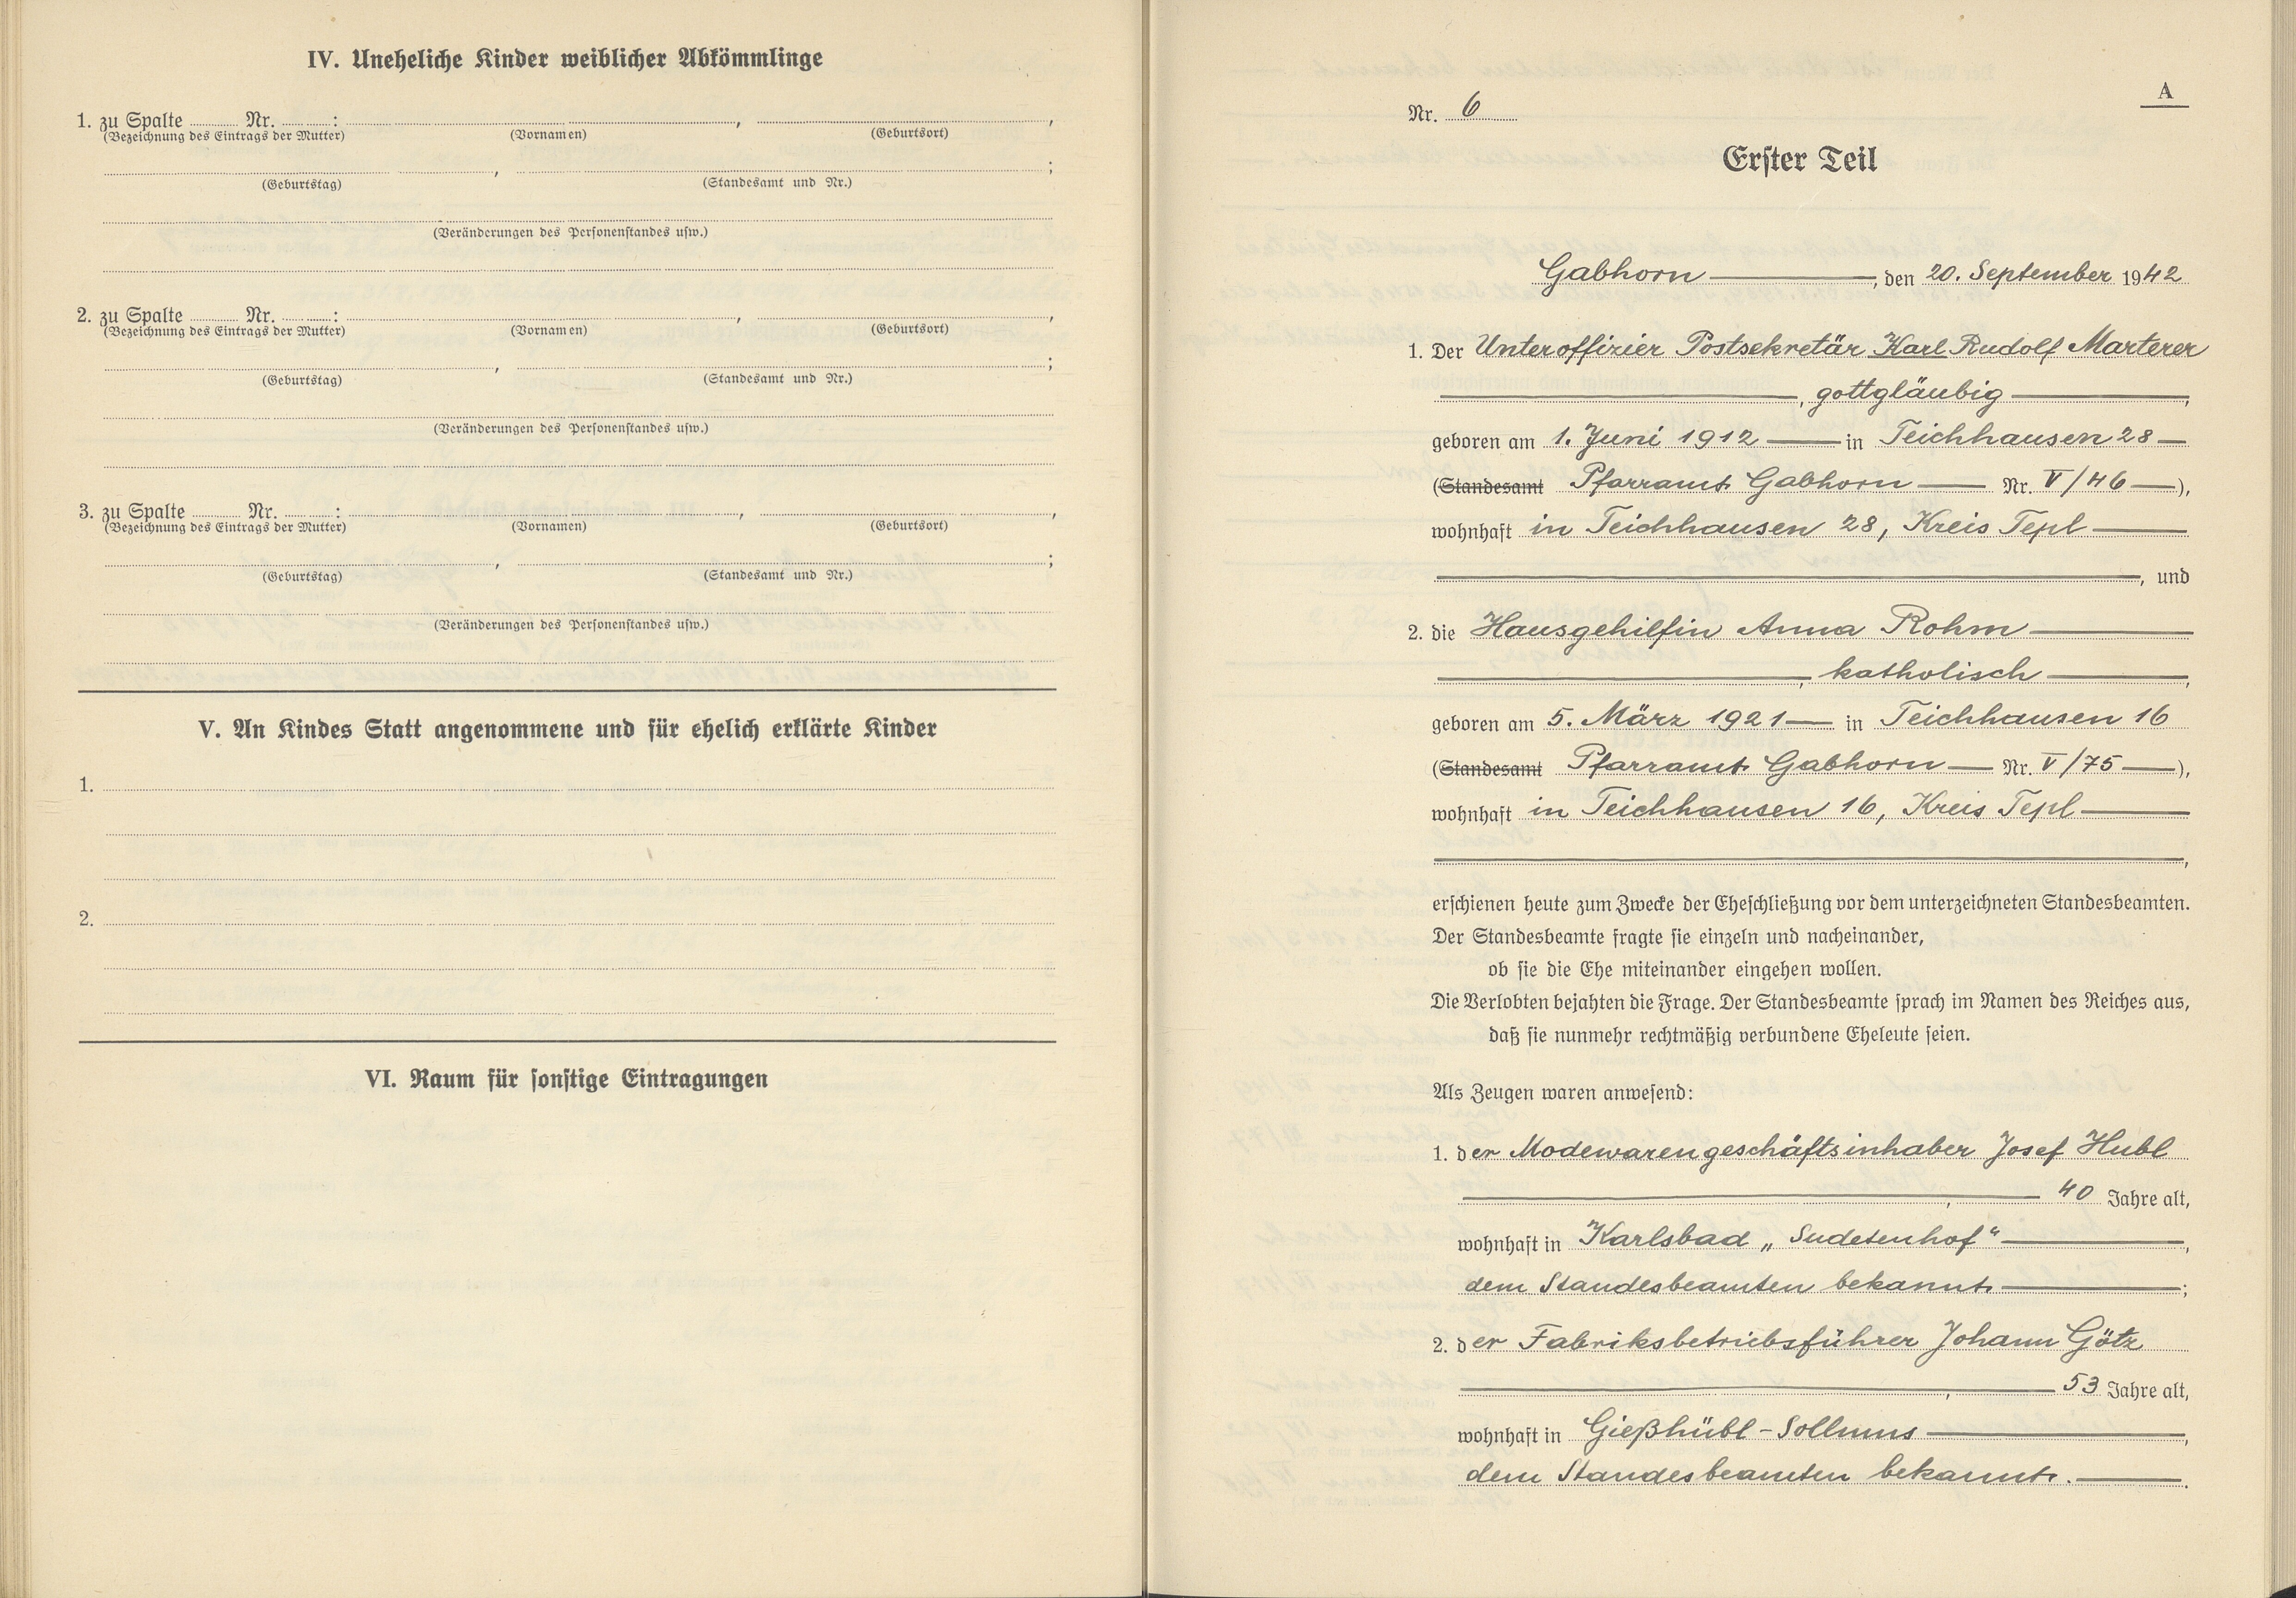 IV. Uneheliche Kinder weiblicher Abkömmlinge
1. zu Spalte ........ Nr. ........ : ........, ........,
(Bezeichnung des Eintrags der Mutter) (Vornamen) (Geburtsort)
........, ........;
(Geburtstag) (Standesamt und Nr.)
(Veränderungen des Personenstandes usw.)
2. zu Spalte ........ Nr. ........ : ........, ........,
(Bezeichnung des Eintrags der Mutter) (Vornamen) (Geburtsort)
........, ........;
(Geburtstag) (Standesamt und Nr.)
(Veränderungen des Personenstandes usw.)
3. zu Spalte ........ Nr. ........ : ........, ........,
(Bezeichnung des Eintrags der Mutter) (Vornamen) (Geburtsort)
........, ........;
(Geburtstag) (Standesamt und Nr.)
(Veränderungen des Personenstandes usw.)
V. An Kindes Statt angenommene und für ehelich erklärte Kinder
1.
2.
VI. Raum für sonstige Eintragungen
A
Nr. 6
Erster Teil
Gabhorn, den 20. September 1942
1. Der Unteroffizier Postsekretär Karl Rudolf Marterer
, gottgläubig,
geboren am 1. Juni 1912 in Teichhausen 28
(Standesamt Pfarramt Gabhorn Nr. V/46),
wohnhaft in Teichhausen 28, Kreis Tepl
, und
2. die Hausgehilfin Anna Rohm
, katholisch,
geboren am 5. März 1921 in Teichhausen 16
(Standesamt Pfarramt Gabhorn Nr. V/75),
wohnhaft in Teichhausen 16, Kreis Tepl
,
erschienen heute zum Zwecke der Eheschließung vor dem unterzeichneten Standesbeamten.
Der Standesbeamte fragte sie einzeln und nacheinander,
ob sie die Ehe miteinander eingehen wollen.
Die Verlobten bejahten die Frage. Der Standesbeamte sprach im Namen des Reiches aus,
daß sie nunmehr rechtmäßig verbundene Eheleute seien.
Als Zeugen waren anwesend:
1. der Modewarengeschäftsinhaber Josef Hubl
, 40 Jahre alt,
wohnhaft in Karlsbad „Sudetenhof“,
dem Standesbeamten bekannt;
2. der Fabriksbetriebsführer Johann Götz
, 53 Jahre alt,
wohnhaft in Gießhübl-Sollmus,
dem Standesbeamten bekannt.